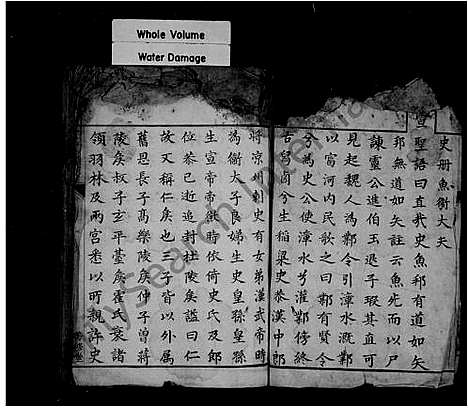 Whole Volume
Water Damage
史册魚衛大夫
宣聖語曰直哉史魚邦有道如矢
邦無道如矢註云魚死而以尸
諫靈公進伯玉退子瑕其直可
見起魏人為鄴令引漳水溉鄴
以富河内民歌之曰鄴有賢令
兮為史公使漳水兮灌鄴傍終
古舄鹵兮生稻粱史恭漢中郎
將涼州刺史有女弟漢武帝時
為衛太子良娣生史皇孫皇孫
生宣帝帝微時依倚史氏及即
位恭已逝追封杜陵矦謚曰仁
故又稱仁矦也三子皆以外屬
舊恩長子髙樂陵矦仲子曾蔣
陵矦叔子玄平臺矦霍氏衰諸
領羽林及兩宫悉以所親許史